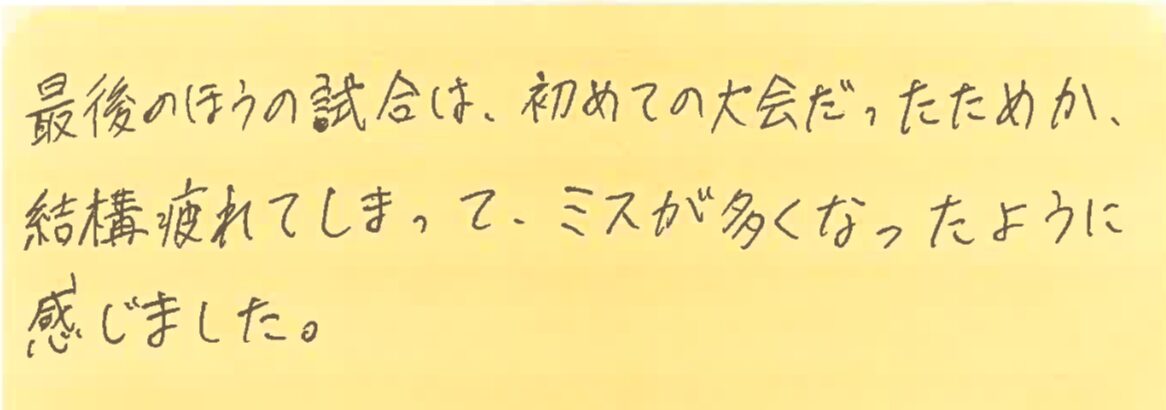 最後のほうの試合は、初めての大会だったためか、
結構疲れてしまって、ミスが多くなったように
感じました。